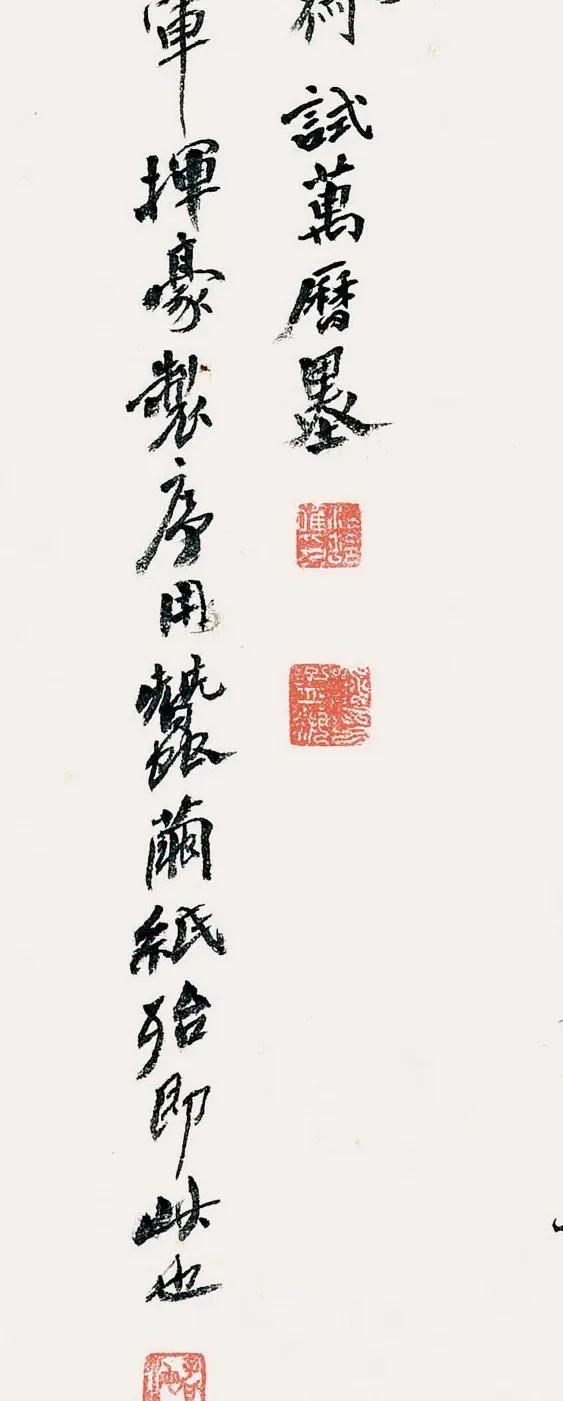 試萬曆墨
軍揮豪製序用蠶繭紙殆即此也